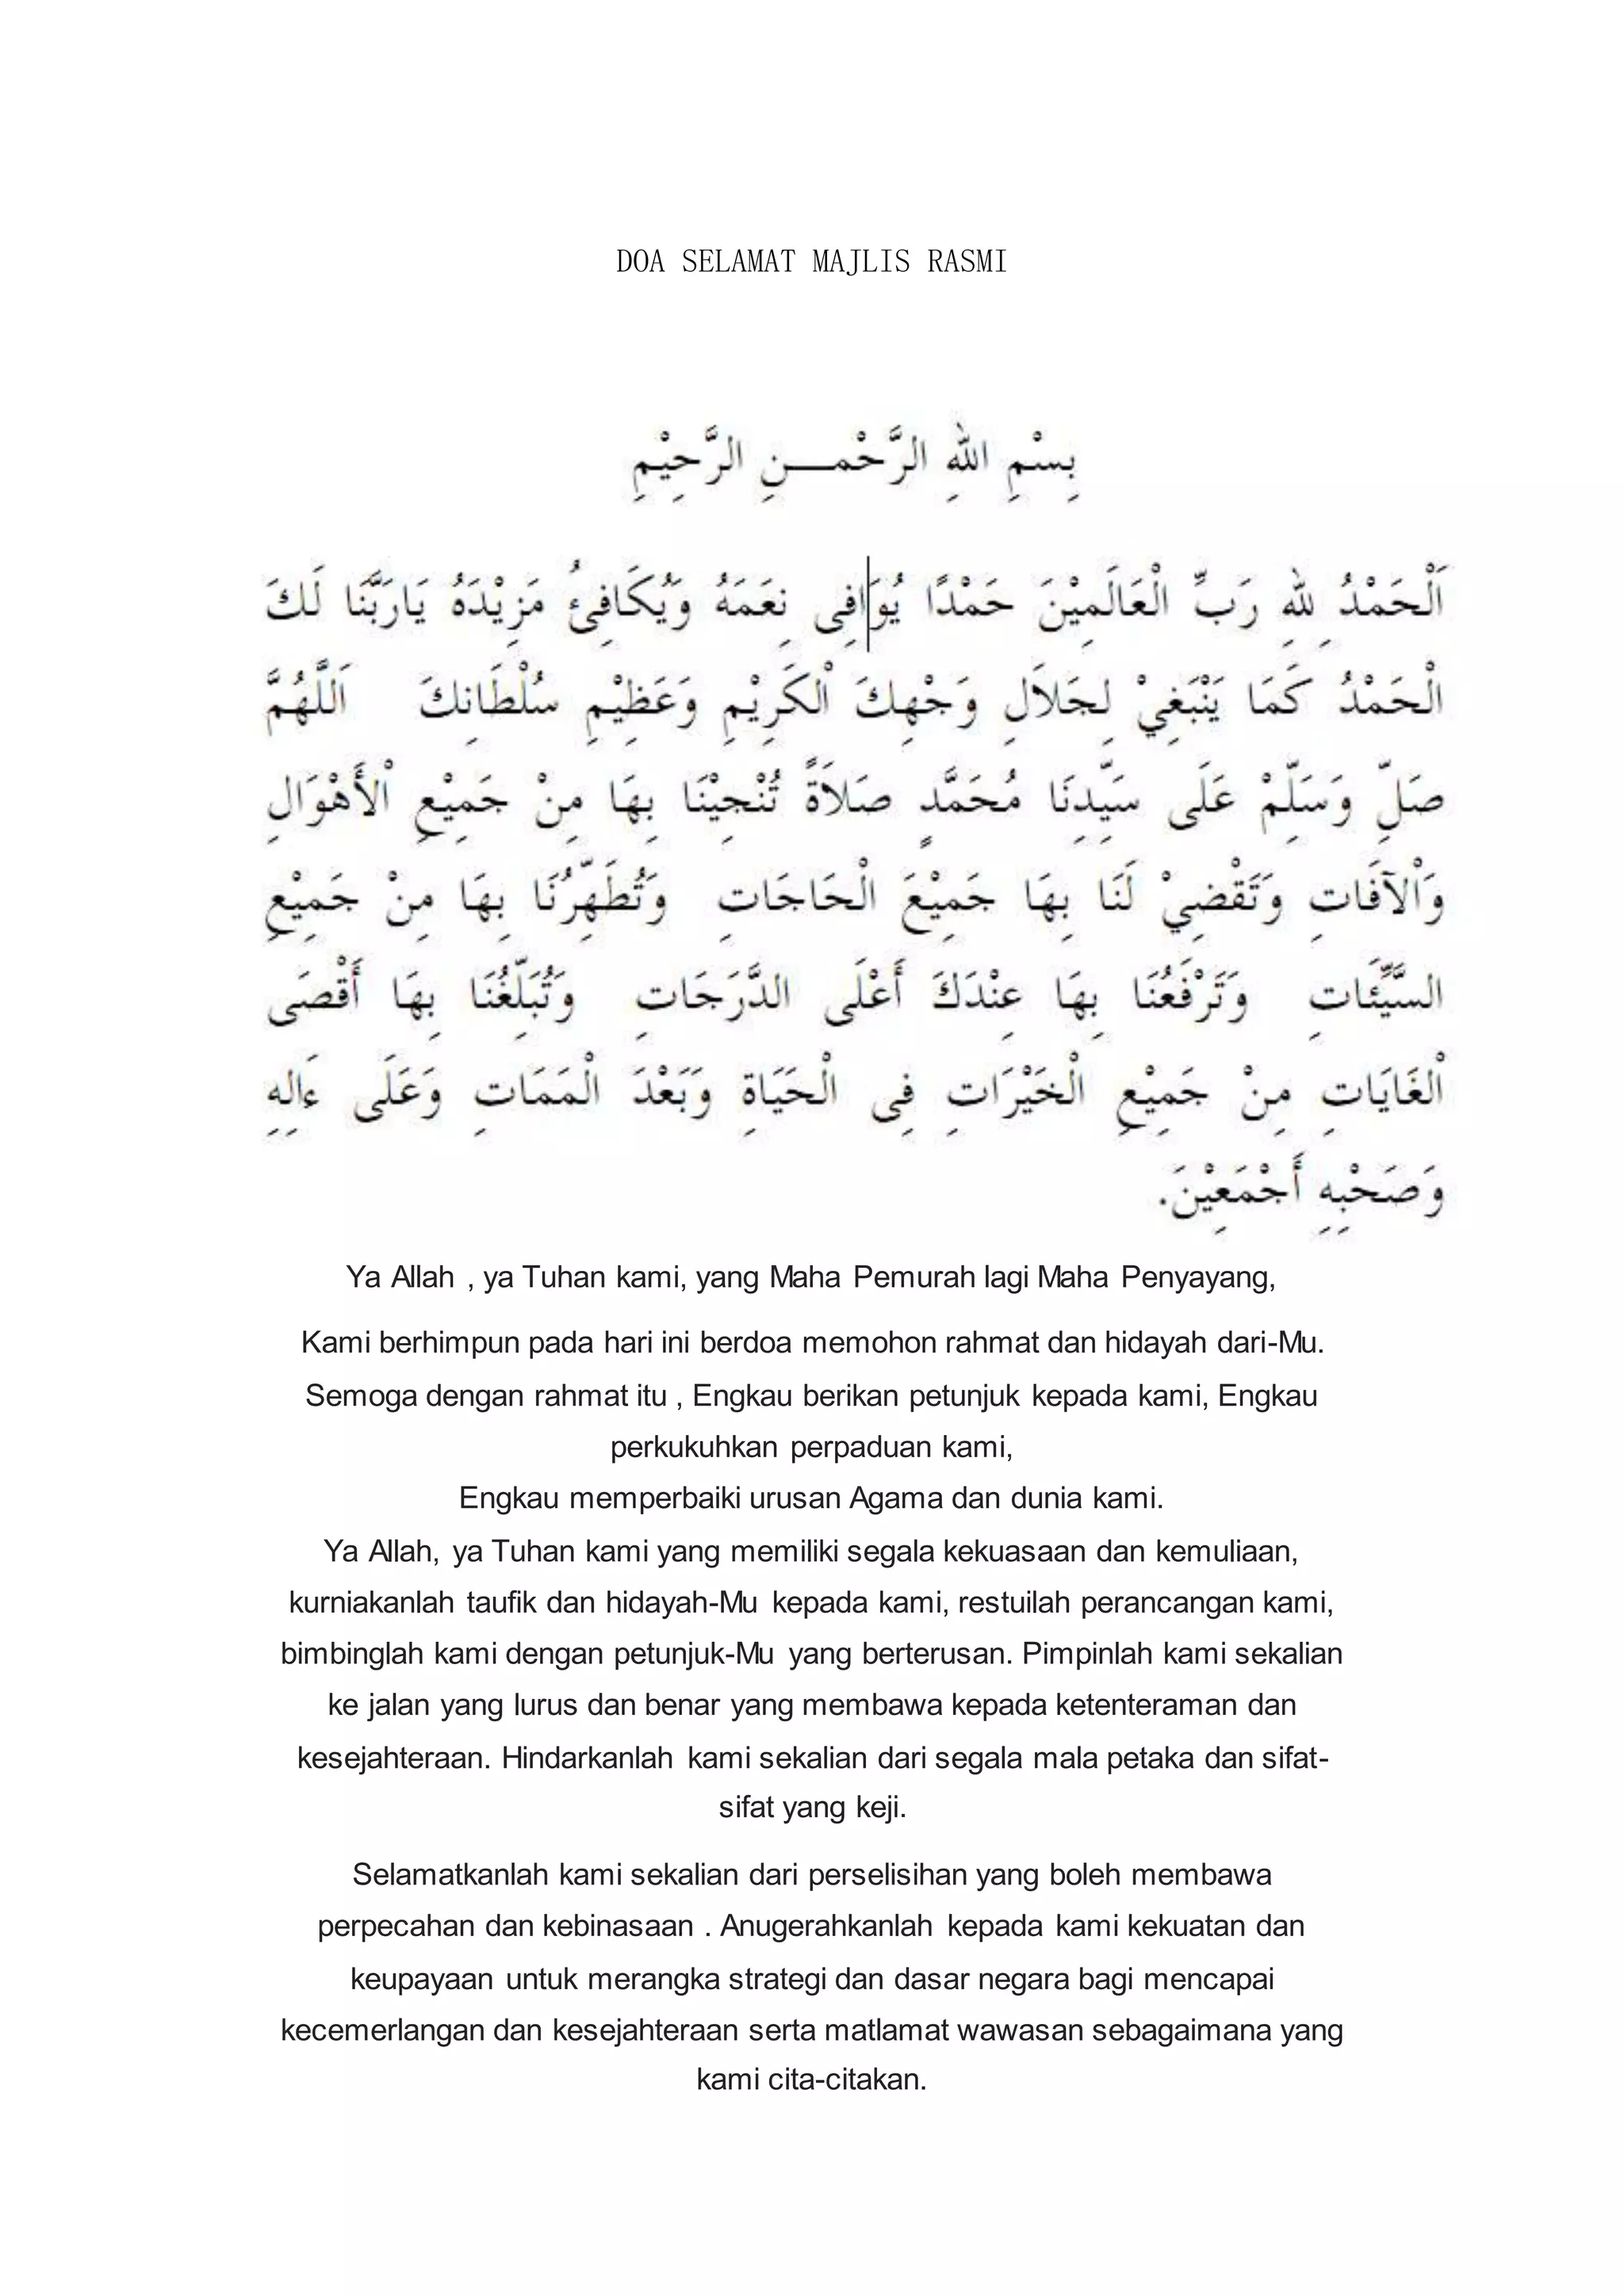 DOA SELAMAT MAJLIS RASMI
بِسْمِ اللهِ الرَّحْمـــنِ الرَّحِيْمِ
اَلْحَمْدُ لِلهِ رَبِّ الْعَالَمِيْنَ حَمْدًا يُوَافِى نِعَمَهُ وَيُكَافِئُ مَزِيْدَهُ يَارَبَّنَا لَكَ
الْحَمْدُ كَمَا يَنْبَغِيْ لِجَلاَلِ وَجْهِكَ الْكَرِيْمِ وَعَظِيْمِ سُلْطَانِكَ اَللَّهُمَّ
صَلِّ وَسَلِّمْ عَلَى سَيِّدِنَا مُحَمَّدٍ صَلاَةً تُنْجِيْنَا بِهَا مِنْ جَمِيْعِ الْأَهْوَالِ
وَالْآفَاتِ وَتَقْضِيْ لَنَا بِهَا جَمِيْعَ الْحَاجَاتِ وَتُطَهِّرُنَا بِهَا مِنْ جَمِيْعِ
السَّيِّئَاتِ وَتَرْفَعُنَا بِهَا عِنْدَكَ أَعْلَى الدَّرَجَاتِ وَتُبَلِّغُنَا بِهَا أَقْصَى
الْغَايَاتِ مِنْ جَمِيْعِ الْخَيْرَاتِ فِى الْحَيَاةِ وَبَعْدَ الْمَمَاتِ وَعَلَى ءَالِهِ
وَصَحْبِهِ أَجْمَعِيْنَ.
Ya Allah , ya Tuhan kami, yang Maha Pemurah lagi Maha Penyayang,
Kami berhimpun pada hari ini berdoa memohon rahmat dan hidayah dari-Mu.
Semoga dengan rahmat itu , Engkau berikan petunjuk kepada kami, Engkau
perkukuhkan perpaduan kami,
Engkau memperbaiki urusan Agama dan dunia kami.
Ya Allah, ya Tuhan kami yang memiliki segala kekuasaan dan kemuliaan,
kurniakanlah taufik dan hidayah-Mu kepada kami, restuilah perancangan kami,
bimbinglah kami dengan petunjuk-Mu yang berterusan. Pimpinlah kami sekalian
ke jalan yang lurus dan benar yang membawa kepada ketenteraman dan
kesejahteraan. Hindarkanlah kami sekalian dari segala mala petaka dan sifat-
sifat yang keji.
Selamatkanlah kami sekalian dari perselisihan yang boleh membawa
perpecahan dan kebinasaan . Anugerahkanlah kepada kami kekuatan dan
keupayaan untuk merangka strategi dan dasar negara bagi mencapai
kecemerlangan dan kesejahteraan serta matlamat wawasan sebagaimana yang
kami cita-citakan.